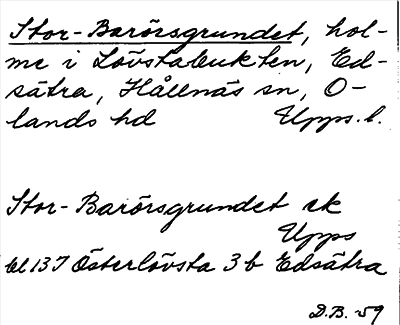 Stor-Barörsgrundet, hol-
me i Lövstabukten, Ed-
sätra, Hållnäs sn, O-
lands hd Upps. l.
Stor-Barörsgrundet sk
Upps
bl 137 Österlövsta 3b Edsätra
D.B. 59